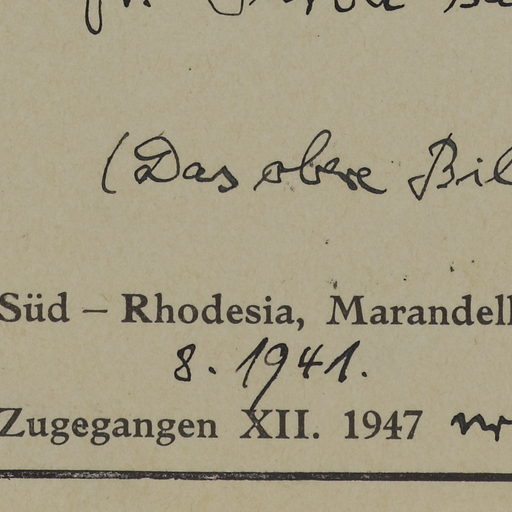 (Das obere Bil
Süd – Rhodesia, Marandell
8. 1941.
Zugegangen XII. 1947